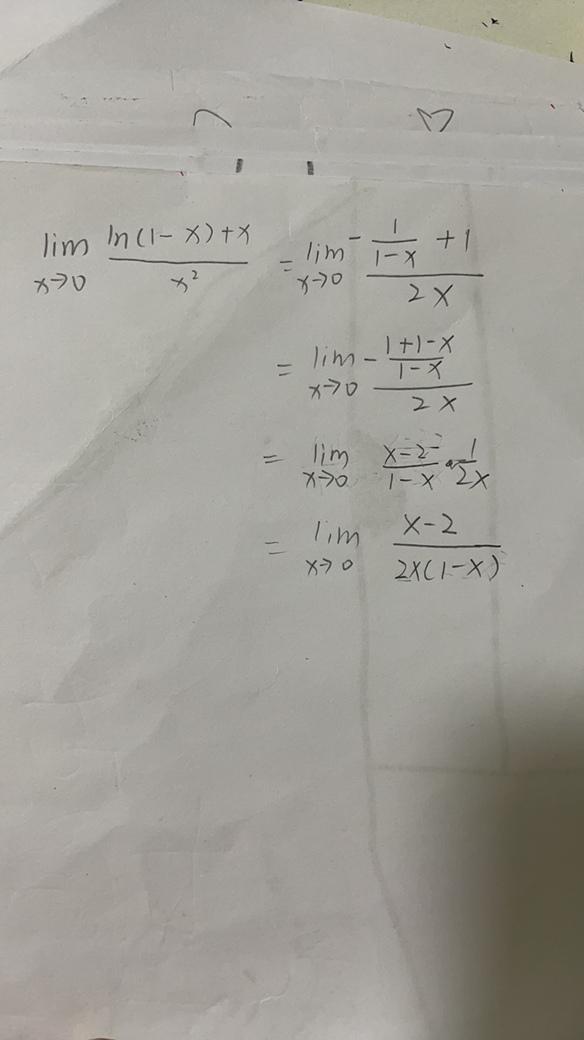 lim x→0 (ln(1-x)+x)/x² = lim x→0 (-1/(1-x) +1)/(2x)
= lim x→0 -((1+1-x)/(1-x))/(2x)
= lim x→0 (x-2)/(1-x) · 1/(2x)
= lim x→0 (x-2)/(2x(1-x))